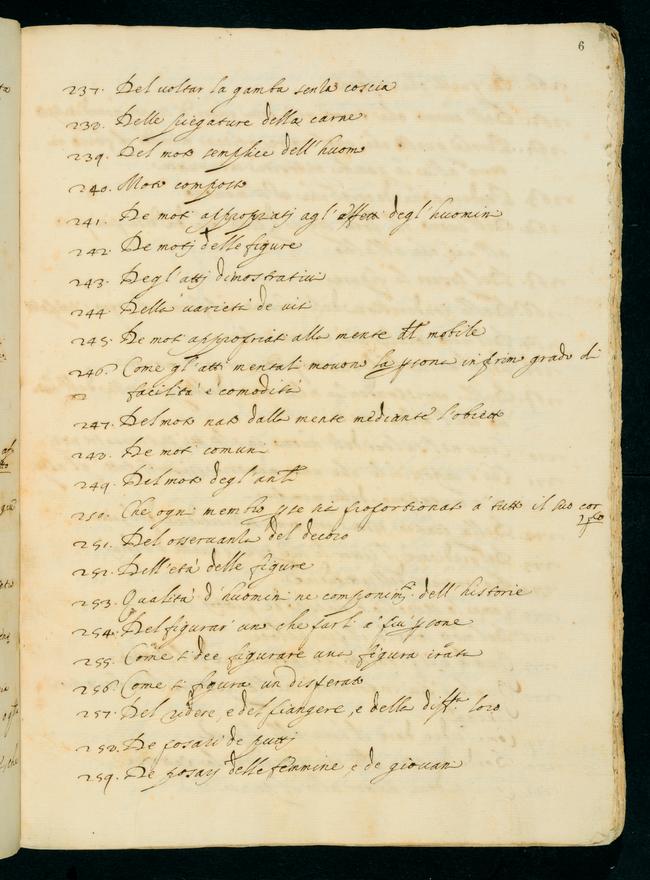 6
237. Del voltar la gamba senza coscia
238. Delle piegature della carne
239. Del moto semplice dell'huomo
240. Moto composto
241. De moti appropriatj agl'effetti degl'huomini
242. De motj delle figure
243. Degl'attj dimostrativi
244. Della varietà de visi
245. De moti appropriati alla mente del mobile
246. Come gl'atti mentali movono la psona in primo grado di
facilità e comodità
247. Del moto nato dalla mente mediante l'obietto
248. De moti comuni
249. Del moto degl'anli
250. Che ogni membro p se sia proportionato à tutto il suo cor
po
251. Del osservanza del decoro
252. Dell'età delle figure
253. Qualità d'huomini ne componimti dell'historie
254. Del figurar' uno che parli à più psone
255. Come si dee figurare una figura irata
256. Come si figura un disperato
257. Del ridere, e del piangere, e della diffa loro
258. De posari de puttj
259. De posarj delle femmine e de giovani